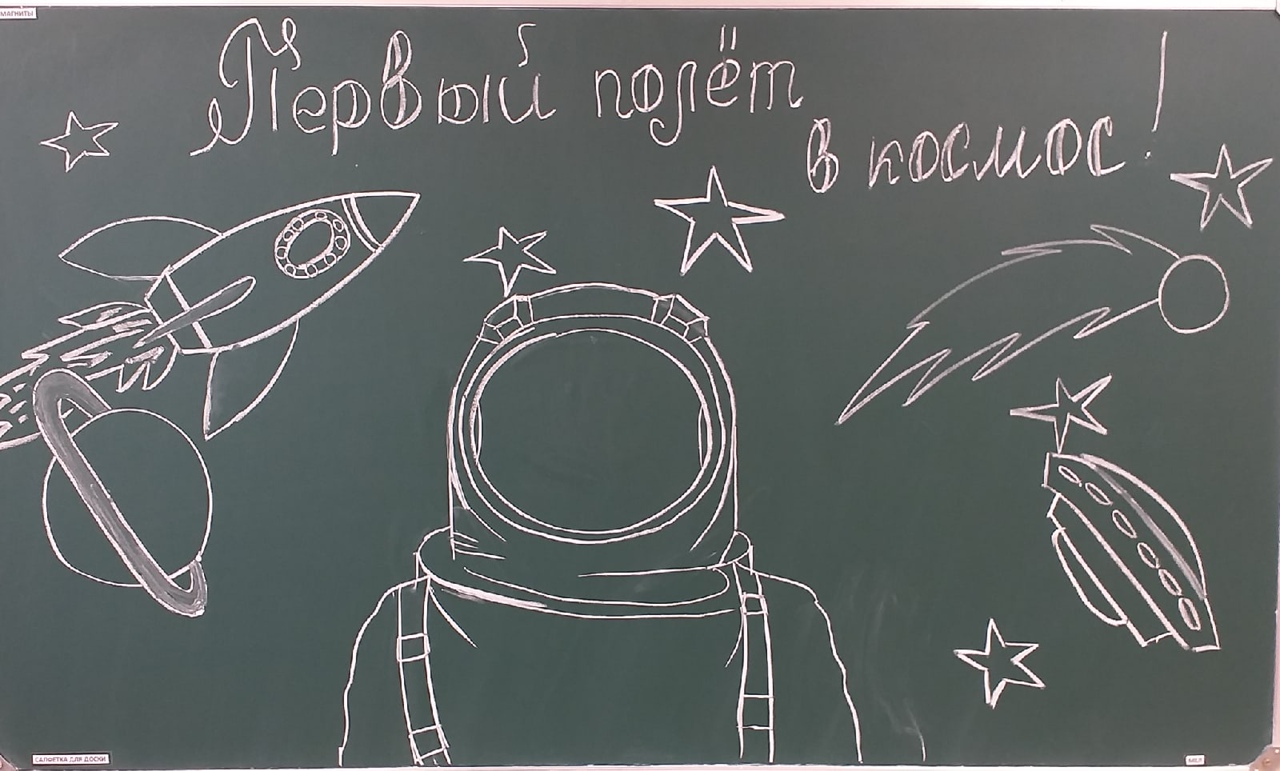 МАГНИТЫ
Первый полёт
в космос!
САЛФЕТКА ДЛЯ ДОСКИ
МЕЛ